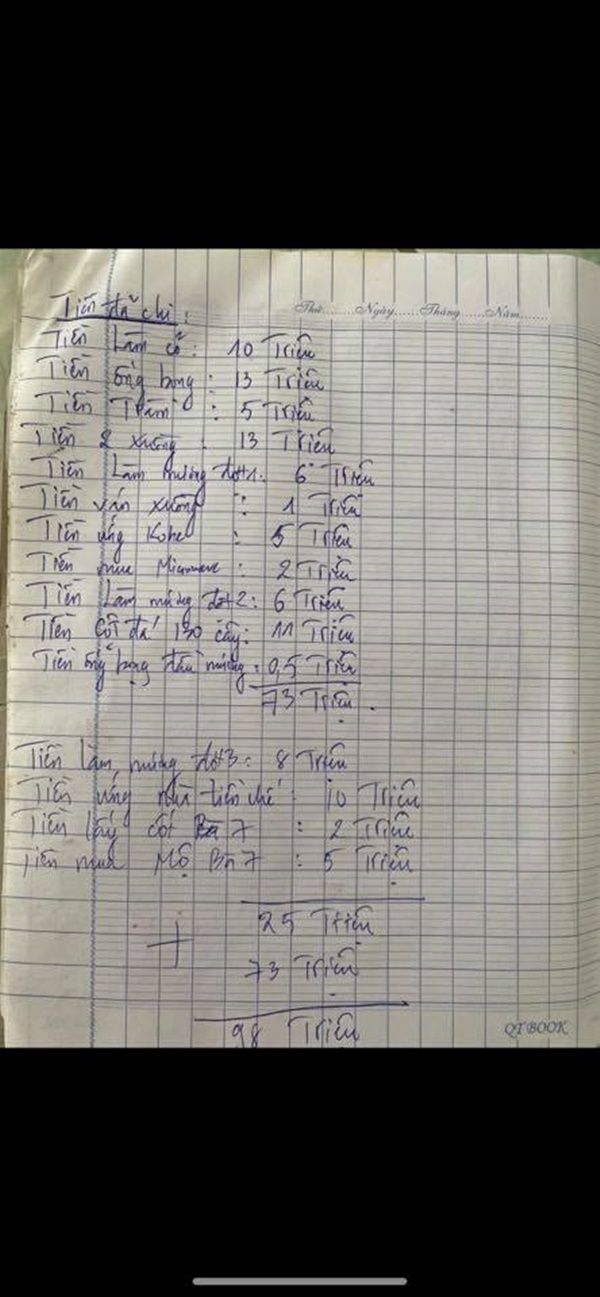 Thứ......Ngày......Tháng......Năm......
Tiền đã chi:
Tiền Làm cỏ: 10 Triệu
Tiền ống bọng: 13 Triệu
Tiền Tràm: 5 Triệu
Tiền 2 xuồng: 13 Triệu
Tiền Làm mương đợt 1: 6 Triệu
Tiền ván xuồng: 1 Triệu
Tiền ứng Kobe: 5 Triệu
Tiền mua Microwave: 2 Triệu
Tiền Làm mương đợt 2: 6 Triệu
Tiền cột đá 130 cây: 11 Triệu
Tiền ống bọng đầu mương: 0,5 Triệu
73 Triệu.
Tiền làm mương đợt 3: 8 Triệu
Tiền ứng nhà tiền chế: 10 Triệu
Tiền lấy cốt Bà 7: 2 Triệu
Tiền mua Mộ Bà 7: 5 Triệu
25 Triệu
+
73 Triệu
98 Triệu
QTBOOK